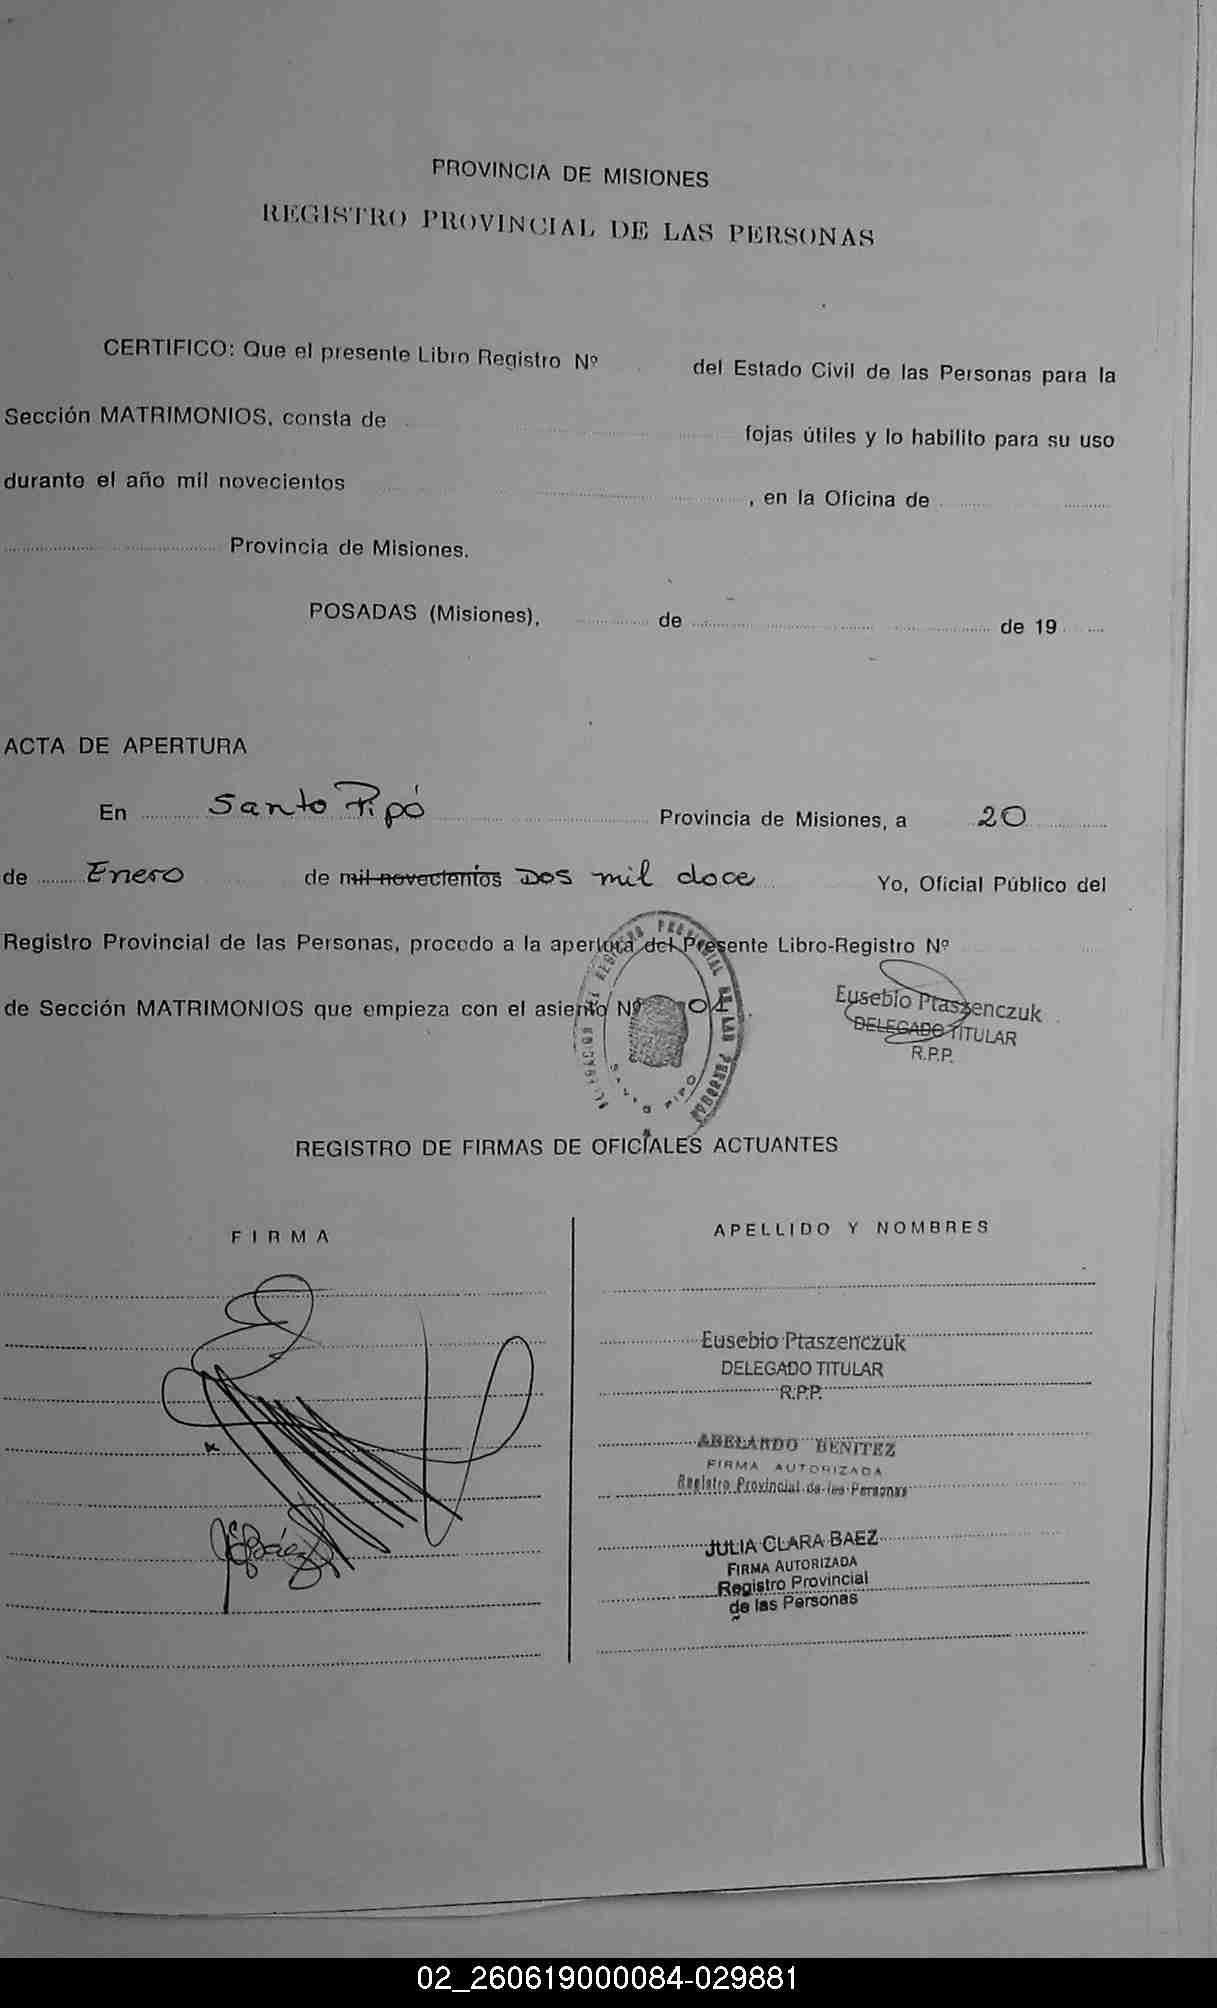 PROVINCIA DE MISIONES
REGISTRO PROVINCIAL DE LAS PERSONAS
CERTIFICO: Que el presente Libro Registro Nº del Estado Civil de las Personas para la
Sección MATRIMONIOS, consta de fojas útiles y lo habilito para su uso
durante el año mil novecientos , en la Oficina de
Provincia de Misiones.
POSADAS (Misiones), de de 19
ACTA DE APERTURA
En Santo Pipó Provincia de Misiones, a 20
de Enero de mil novecientos Dos mil doce Yo, Oficial Público del
Registro Provincial de las Personas, procedo a la apertura del Presente Libro-Registro Nº
de Sección MATRIMONIOS que empieza con el asiento Nº
Eusebio Ptaszenczuk
DELEGADO TITULAR
R.P.P.
REGISTRO PROVINCIAL DE LAS PERSONAS
REGISTRO DE FIRMAS DE OFICIALES ACTUANTES
FIRMA APELLIDO Y NOMBRES
Eusebio Ptaszenczuk
DELEGADO TITULAR
R.P.P.
ABELARDO BENITEZ
FIRMA AUTORIZADA
Registro Provincial de las Personas
JCBáez
JULIA CLARA BAEZ
FIRMA AUTORIZADA
Registro Provincial
de las Personas
02_260619000084-029881